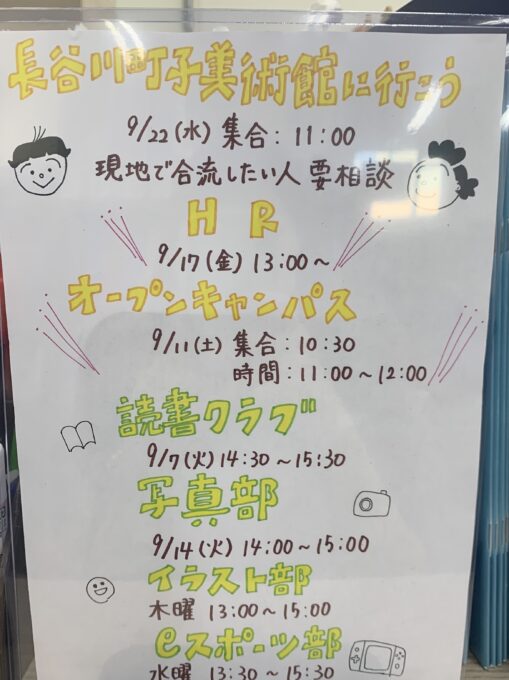 長谷川町子美術館に行こう
9/22(水) 集合：11:00
現地で合流したい人 要相談
HR
9/17(金) 13:00～
オープンキャンパス
9/11(土) 集合：10:30
時間：11:00～12:00
読書クラブ
9/7(火) 14:30～15:30
写真部
9/14(火) 14:00～15:00
イラスト部
木曜 13:00～15:00
eスポーツ部
水曜 13:30～15:30